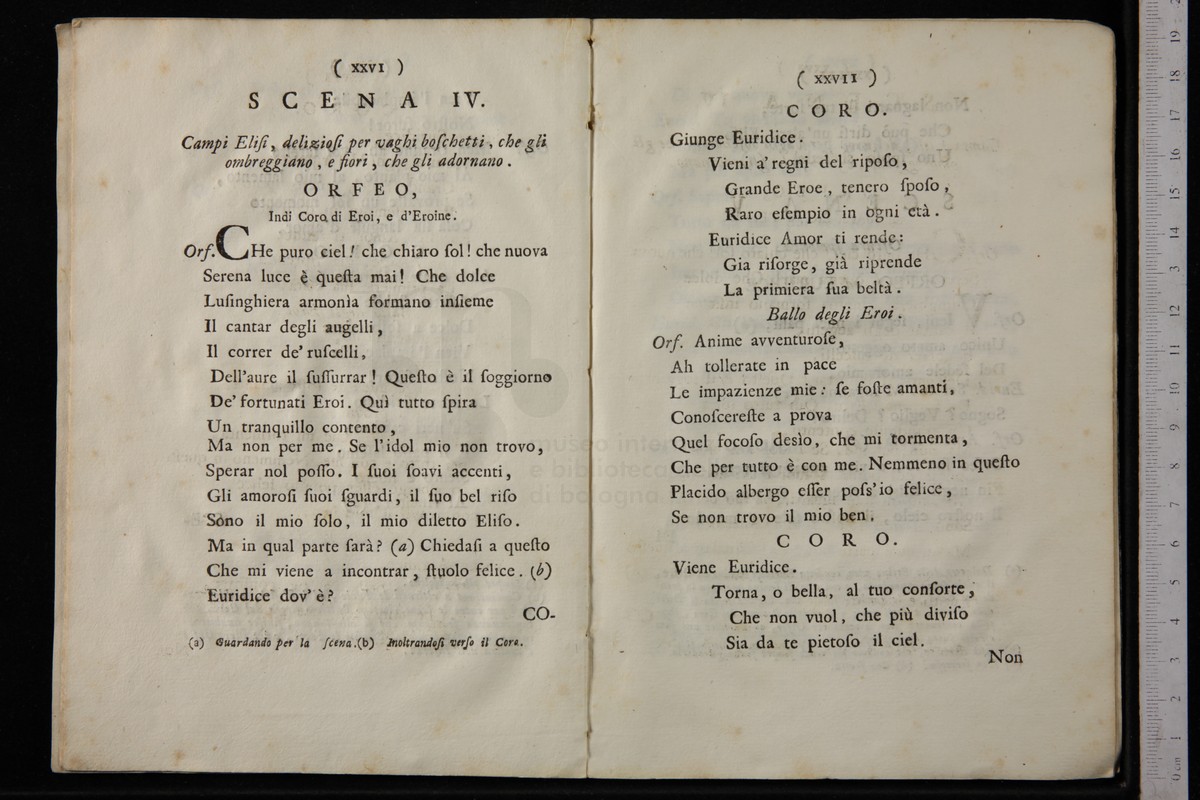 ( XXVI )
S C E N A IV.
Campi Eliſi, delizioſi per vaghi boſchetti, che gli
ombreggiano, e fiori, che gli adornano.
O R F E O,
Indi Coro di Eroi, e d'Eroine.
Orf. CHe puro ciel! che chiaro ſol! che nuova
Serena luce è queſta mai! Che dolce
Luſinghiera armonìa formano inſieme
Il cantar degli augelli,
Il correr de' ruſcelli,
Dell'aure il ſuſſurrar! Queſto è il ſoggiorno
De' fortunati Eroi. Quì tutto ſpira
Un tranquillo contento,
Ma non per me. Se l'idol mio non trovo,
Sperar nol poſſo. I ſuoi ſoavi accenti,
Gli amoroſi ſuoi ſguardi, il ſuo bel riſo
Sono il mio ſolo, il mio diletto Eliſo.
Ma in qual parte ſarà? (a) Chiedaſi a queſto
Che mi viene a incontrar, ſtuolo felice. (b)
Euridice dov'è?
CO-
(a) Guardando per la ſcena. (b) Inoltrandoſi verſo il Coro.
( XXVII )
C O R O.
Giunge Euridice.
Vieni a' regni del ripoſo,
Grande Eroe, tenero ſpoſo,
Raro eſempio in ogni età.
Euridice Amor ti rende:
Gia riſorge, già riprende
La primiera ſua beltà.
Ballo degli Eroi.
Orf. Anime avventuroſe,
Ah tollerate in pace
Le impazienze mie: ſe foſte amanti,
Conoſcereſte a prova
Quel focoſo desìo, che mi tormenta,
Che per tutto è con me. Nemmeno in queſto
Placido albergo eſſer poſs'io felice,
Se non trovo il mio ben.
C O R O.
Viene Euridice.
Torna, o bella, al tuo conſorte,
Che non vuol, che più diviſo
Sia da te pietoſo il ciel.
Non